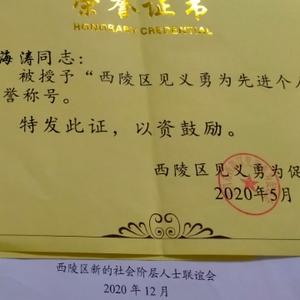 荣誉证书
HONORARY CREDENTIAL
海涛同志：
被授予“西陵区见义勇为先进个
誉称号。
特发此证，以资鼓励。
西陵区见义勇为促
2020年5月
西陵区新的社会阶层人士联谊会
2020年12月